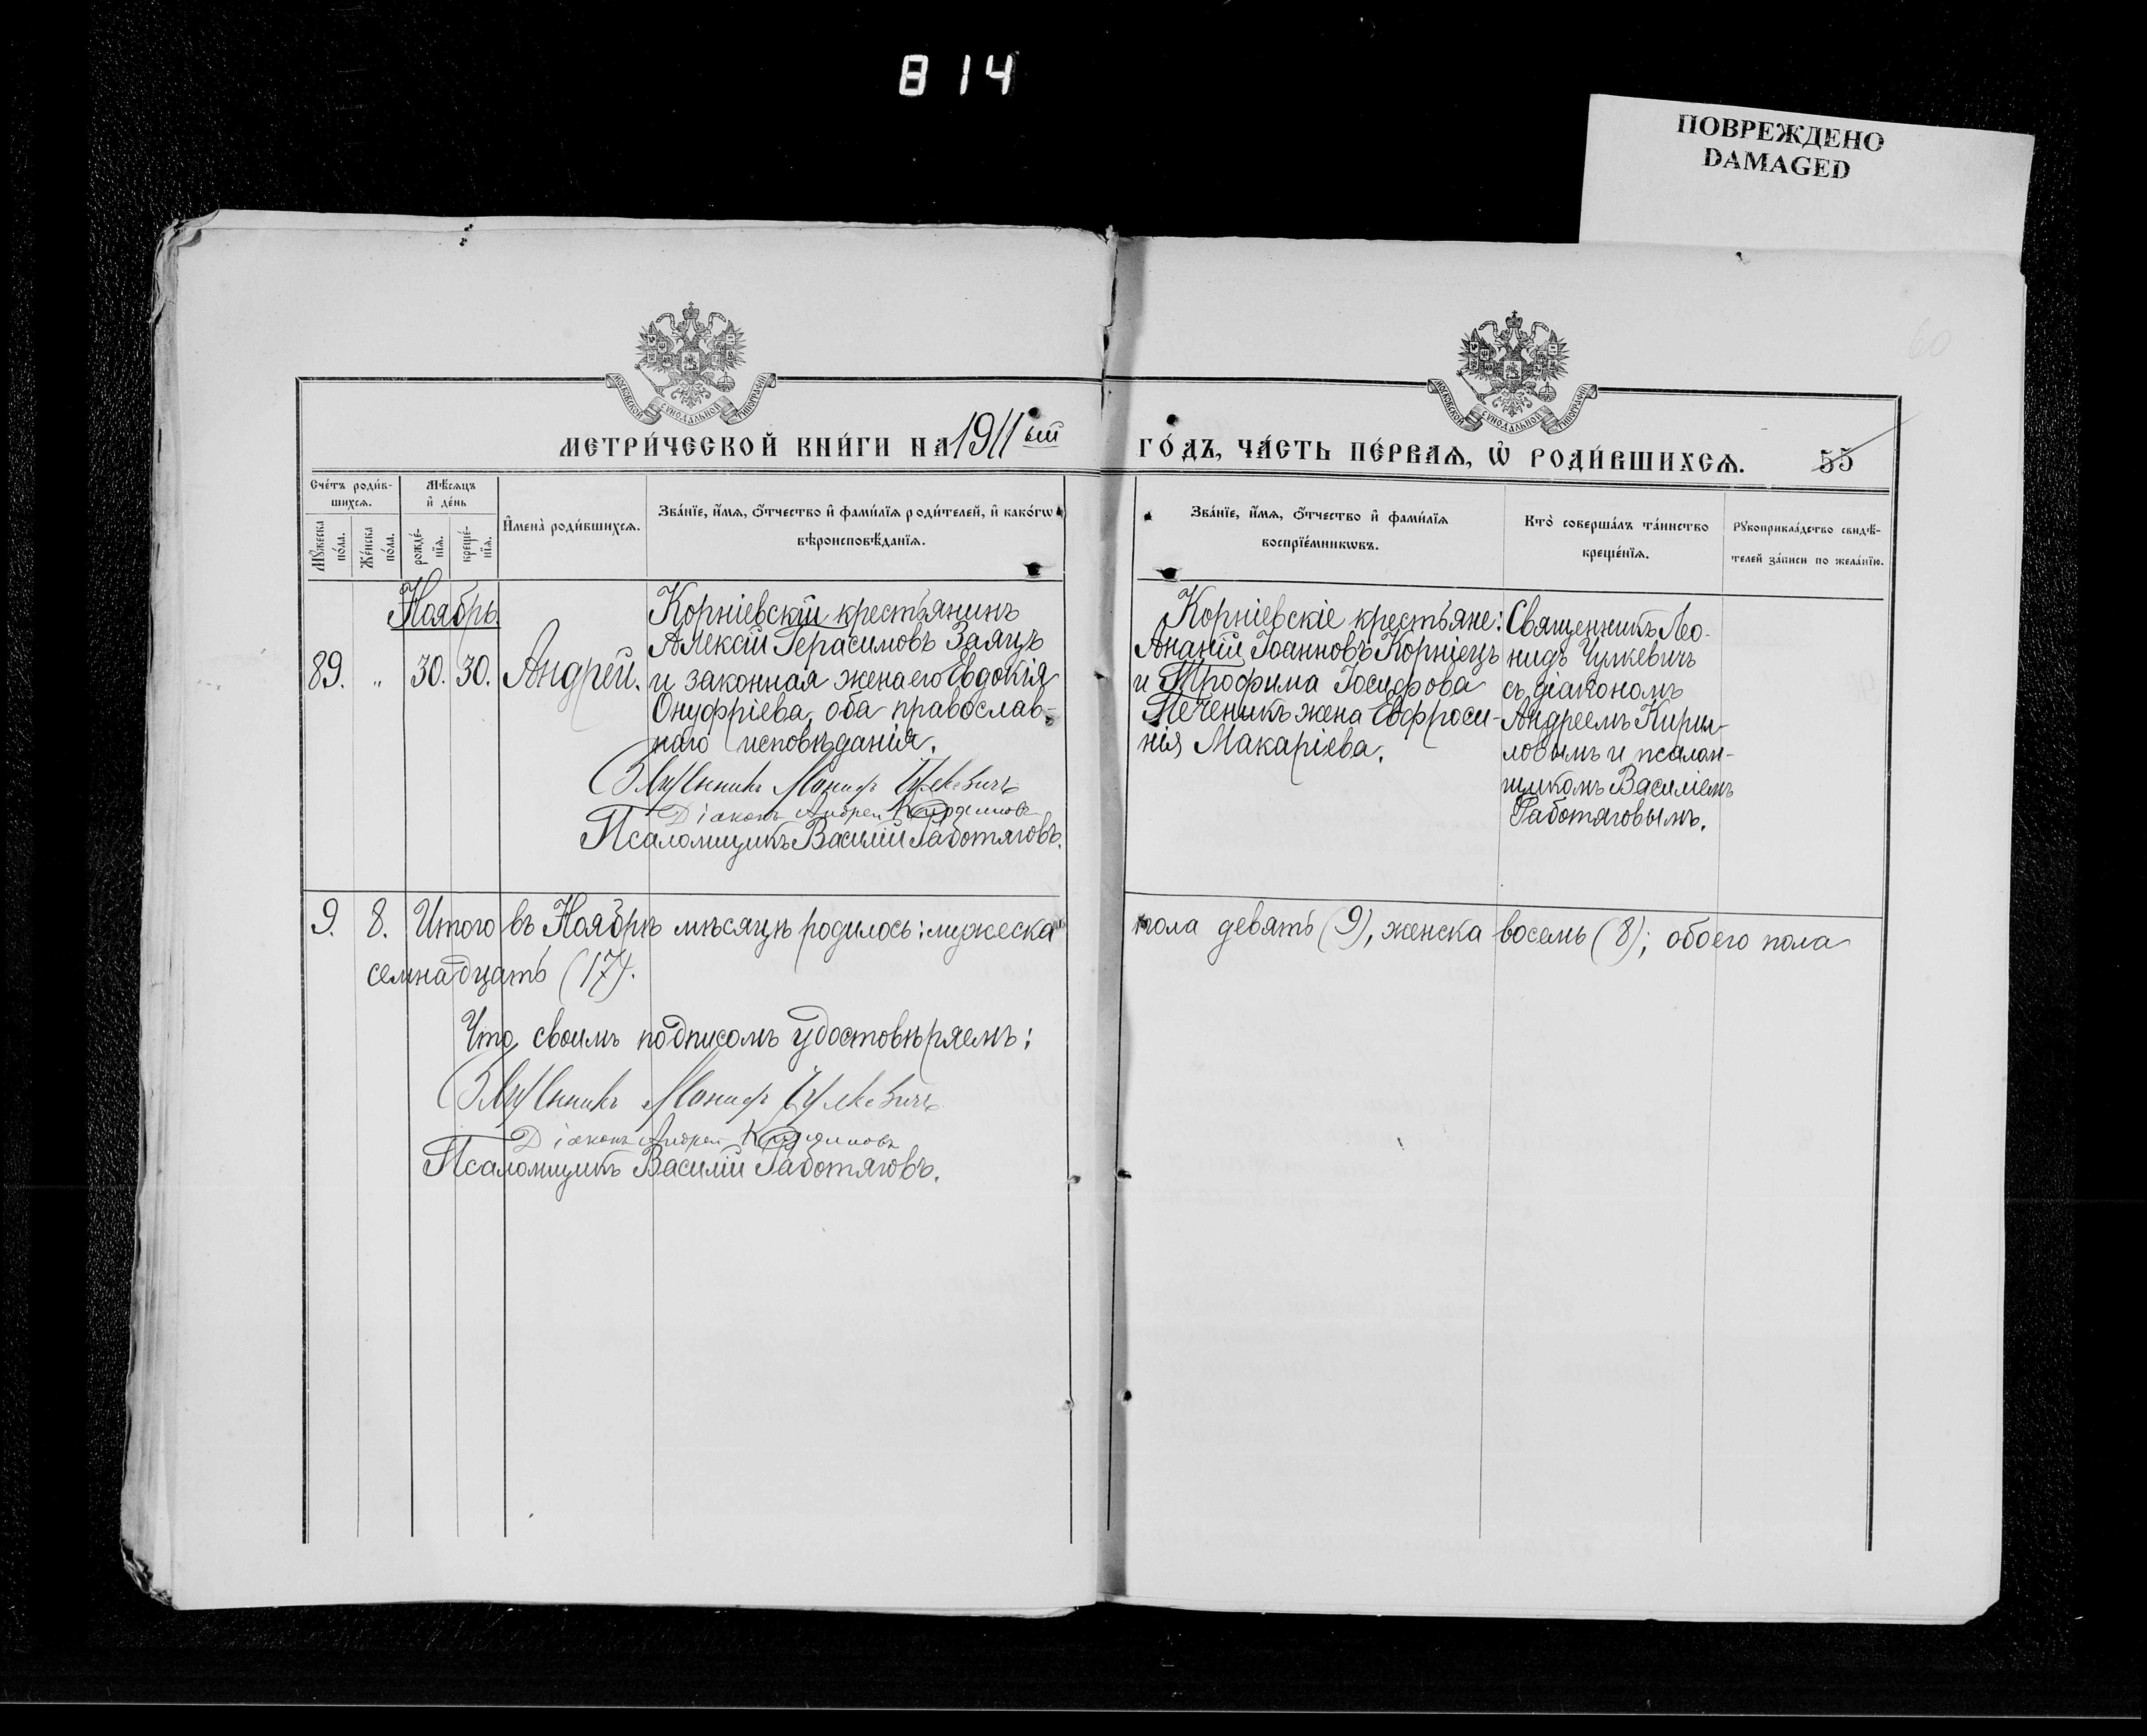 814
ПОВРЕЖДЕНО
DAMAGED
60
МОСКОВСКОЙ СѴНОДАЛЬНОЙ ТИПОГРАФІИ
МОСКОВСКОЙ СѴНОДАЛЬНОЙ ТИПОГРАФІИ
МЕТРИ́ЧЕСКОЙ КНИ́ГИ НА 1911ый
ГО́ДЪ, ЧА́СТЬ ПЕ́РВАѦ, Ѽ РОДИ́ВШИХСѦ. 55
Сче́тъ роди́в-
шихсѧ.
Мꙋ́жеска по́ла.
Же́нска по́ла.
Мѣ́сѧцъ
и҆ де́нь
рожде́-
нїѧ.
креще́-
нїѧ.
И҆мена̀ роди́вшихсѧ.
Зва́нїе, и҆́мѧ, ѻ҆́тчество и҆ фами́лїѧ роди́телей, и҆ како́гѡ
вѣроисповѣ́данїѧ.
Зва́нїе, и҆́мѧ, ѻ҆́тчество и҆ фами́лїѧ
воспрїе́мникѡвъ.
Кто̀ соверша́лъ та́инство
креще́нїѧ.
Рꙋкоприкла́дство свидѣ́-
телей за́писи по жела́нїю.
Ноябрь
89. „ 30. 30. Андрей.
Корніевскій крестьянинъ
Алексій Герасимовъ Заяцъ
и законная жена его Евдокія
Онуфріева, оба православ-
наго исповѣданія.
Священникъ Леонидъ Чулкевичъ
Діаконъ Андрей Кирилловъ
Псаломщикъ Василій Работяговъ.
Корніевскіе крестьяне:
Ананій Іоанновъ Корніецъ
и Трофима Іосифова
Печеникъ жена Евфроси-
нія Макаріева.
Священникъ Лео-
нидъ Чулкевичъ
съ діакономъ
Андреемъ Кирил-
ловымъ и псалом-
щикомъ Василіемъ
Работяговымъ.
9. 8. Итого въ Ноябрѣ мѣсяцѣ родилось: мужеска пола девять (9), женска восемь (8); обоего пола
семнадцать (17).
Что своимъ подписомъ удостовѣряемъ:
Священникъ Леонидъ Чулкевичъ
Діаконъ Андрей Кирилловъ
Псаломщикъ Василій Работяговъ.